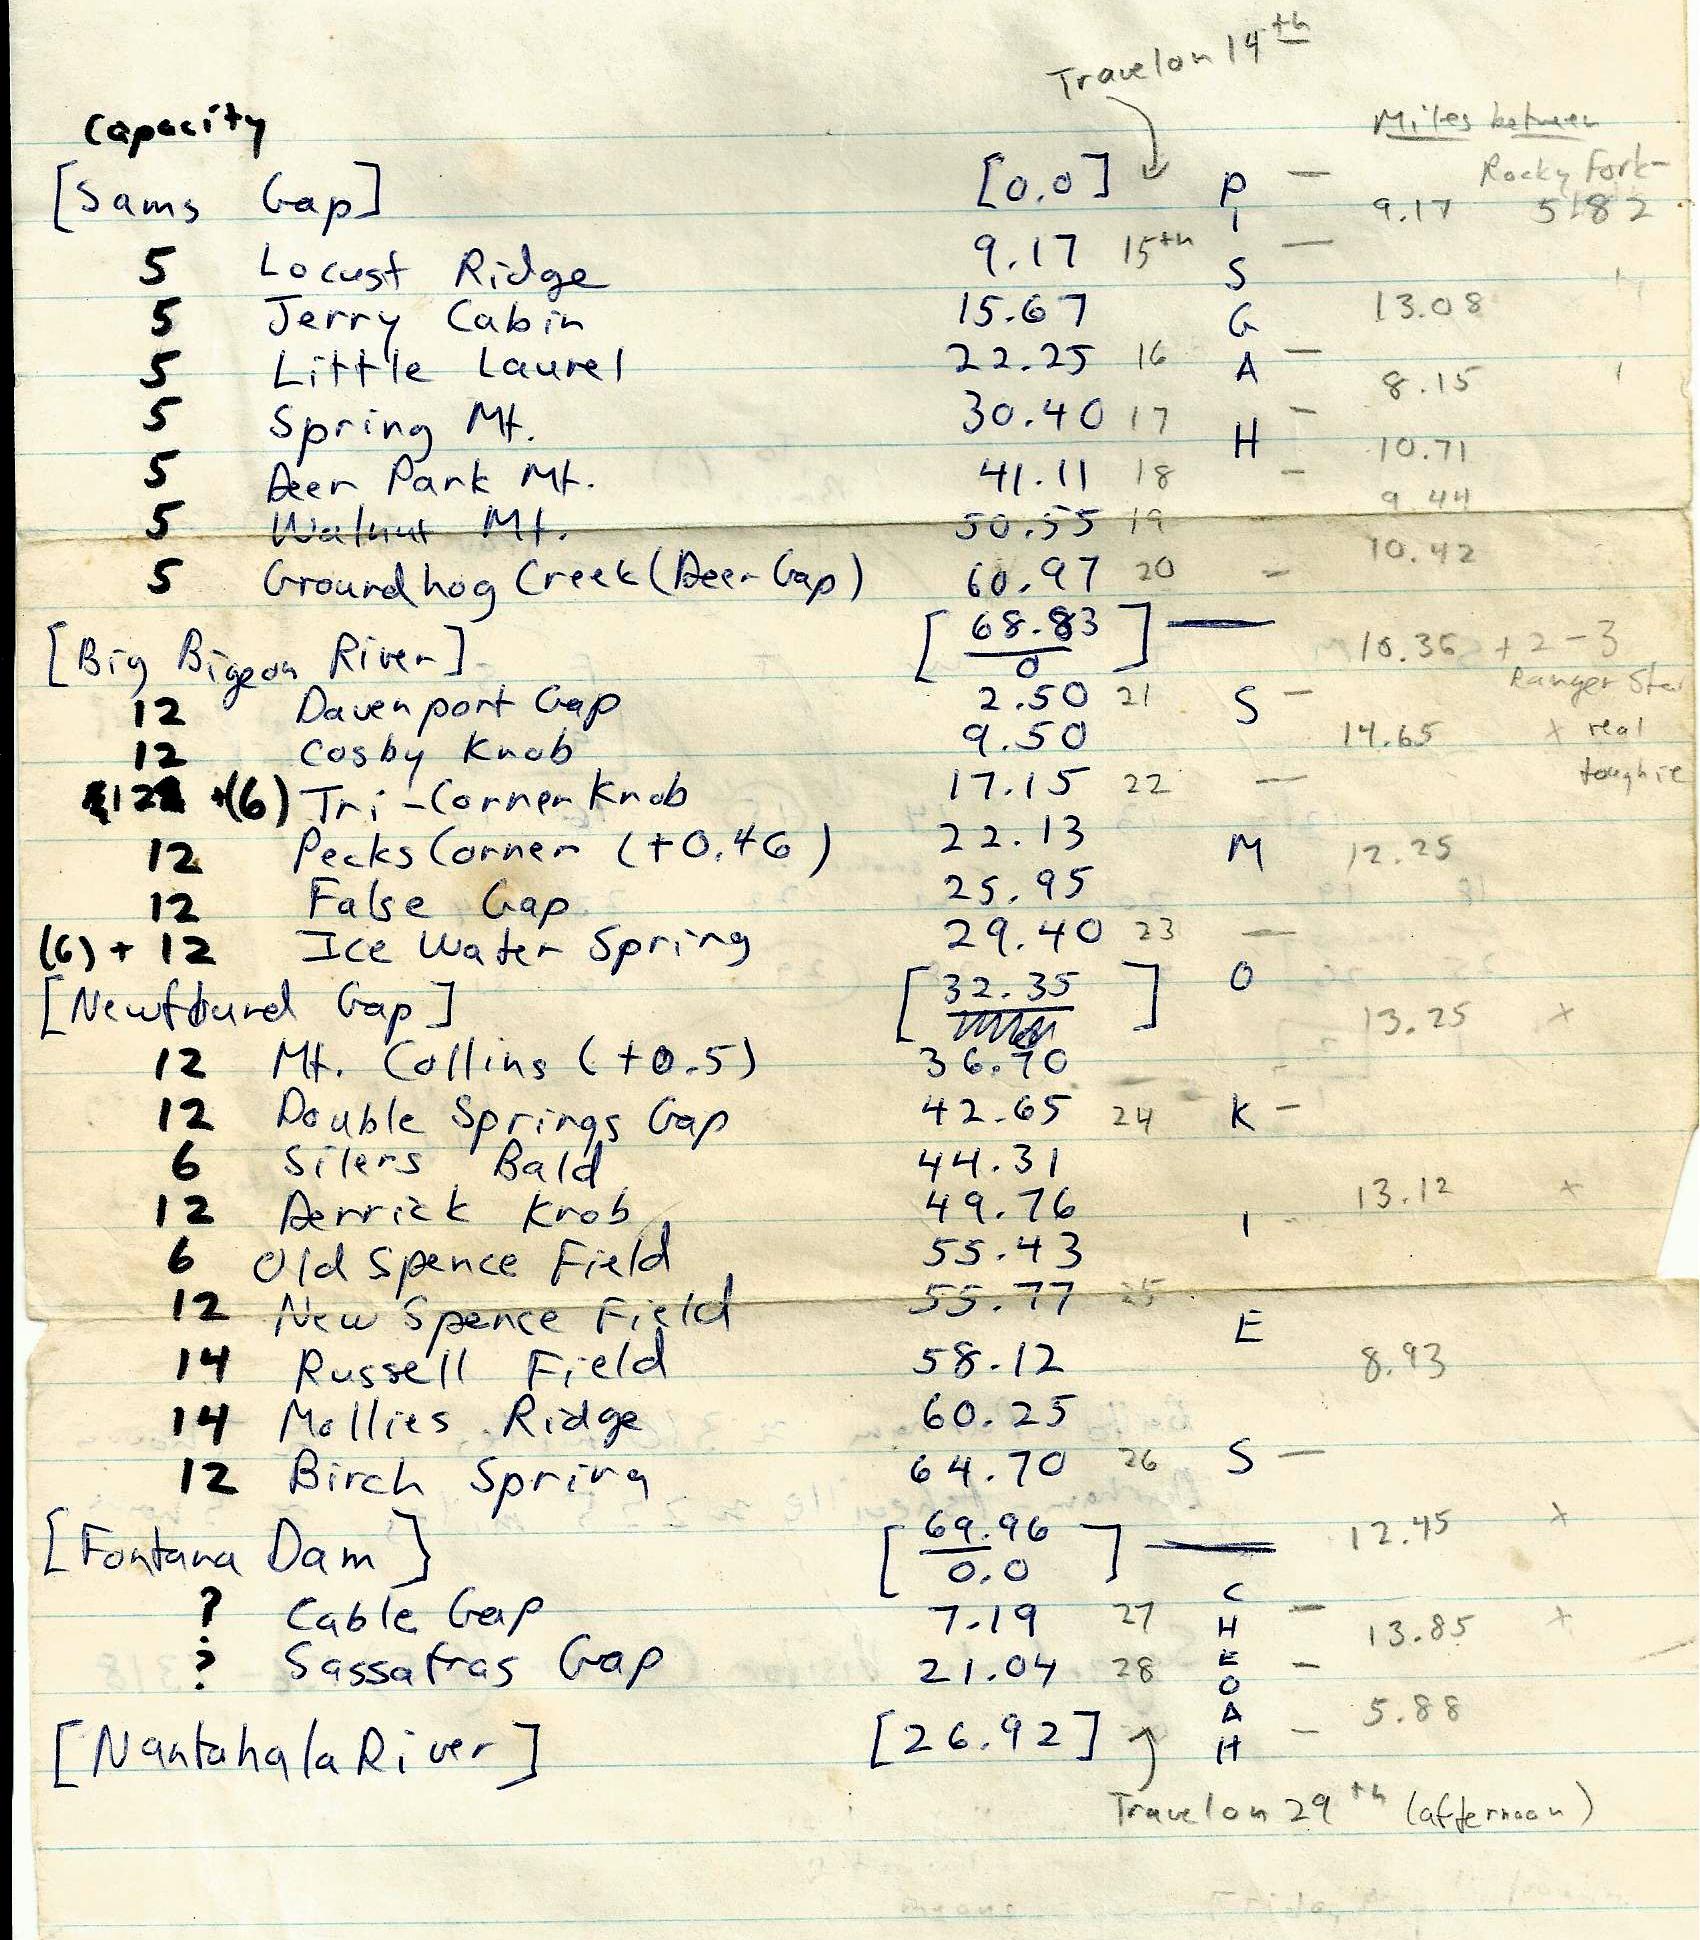 Travel on 14th
Capacity
Miles between
[Sams Gap] [0.0] P — Rocky Fork-
I 9.17 5182
5 Locust Ridge 9.17 15th S —
5 Jerry Cabin 15.67 G 13.08
5 Little Laurel 22.25 16 A —
8.15
5 Spring Mt. 30.40 17 H —
10.71
5 Deer Park Mt. 41.11 18 —
9.44
5 Walnut Mt. 50.55 19 —
10.42
5 Groundhog Creek (Deer Gap) 60.97 20 —
[Big Bigeon River] [68.83
0] 10.36 + 2-3
Ranger Sta
12 Davenport Gap 2.50 21 S —
12 Cosby Knob 9.50 14.65 x real
toughie
12 +(6) Tri-Corner Knob 17.15 22 —
12 Pecks Corner (+0.46) 22.13 M 12.25
12 False Gap 25.95
(6) + 12 Ice Water Spring 29.40 23 —
[Newfound Gap] [32.35] O
13.25 x
12 Mt. Collins (+0.5) 36.70
12 Double Springs Gap 42.65 24 K —
6 Silers Bald 44.31
13.12 x
12 Derrick Knob 49.76 I
6 Old Spence Field 55.43
12 New Spence Field 55.77 25 E
14 Russell Field 58.12 8.93
14 Mollies Ridge 60.25
12 Birch Spring 64.70 26 S —
[Fontana Dam] [69.96
0.0] 12.45 x
C
? Cable Gap 7.19 27 H —
13.85 x
? Sassafras Gap 21.04 28 E —
O
A 5.88
[Nantahala River] [26.92] H —
Travel on 29th (afternoon)